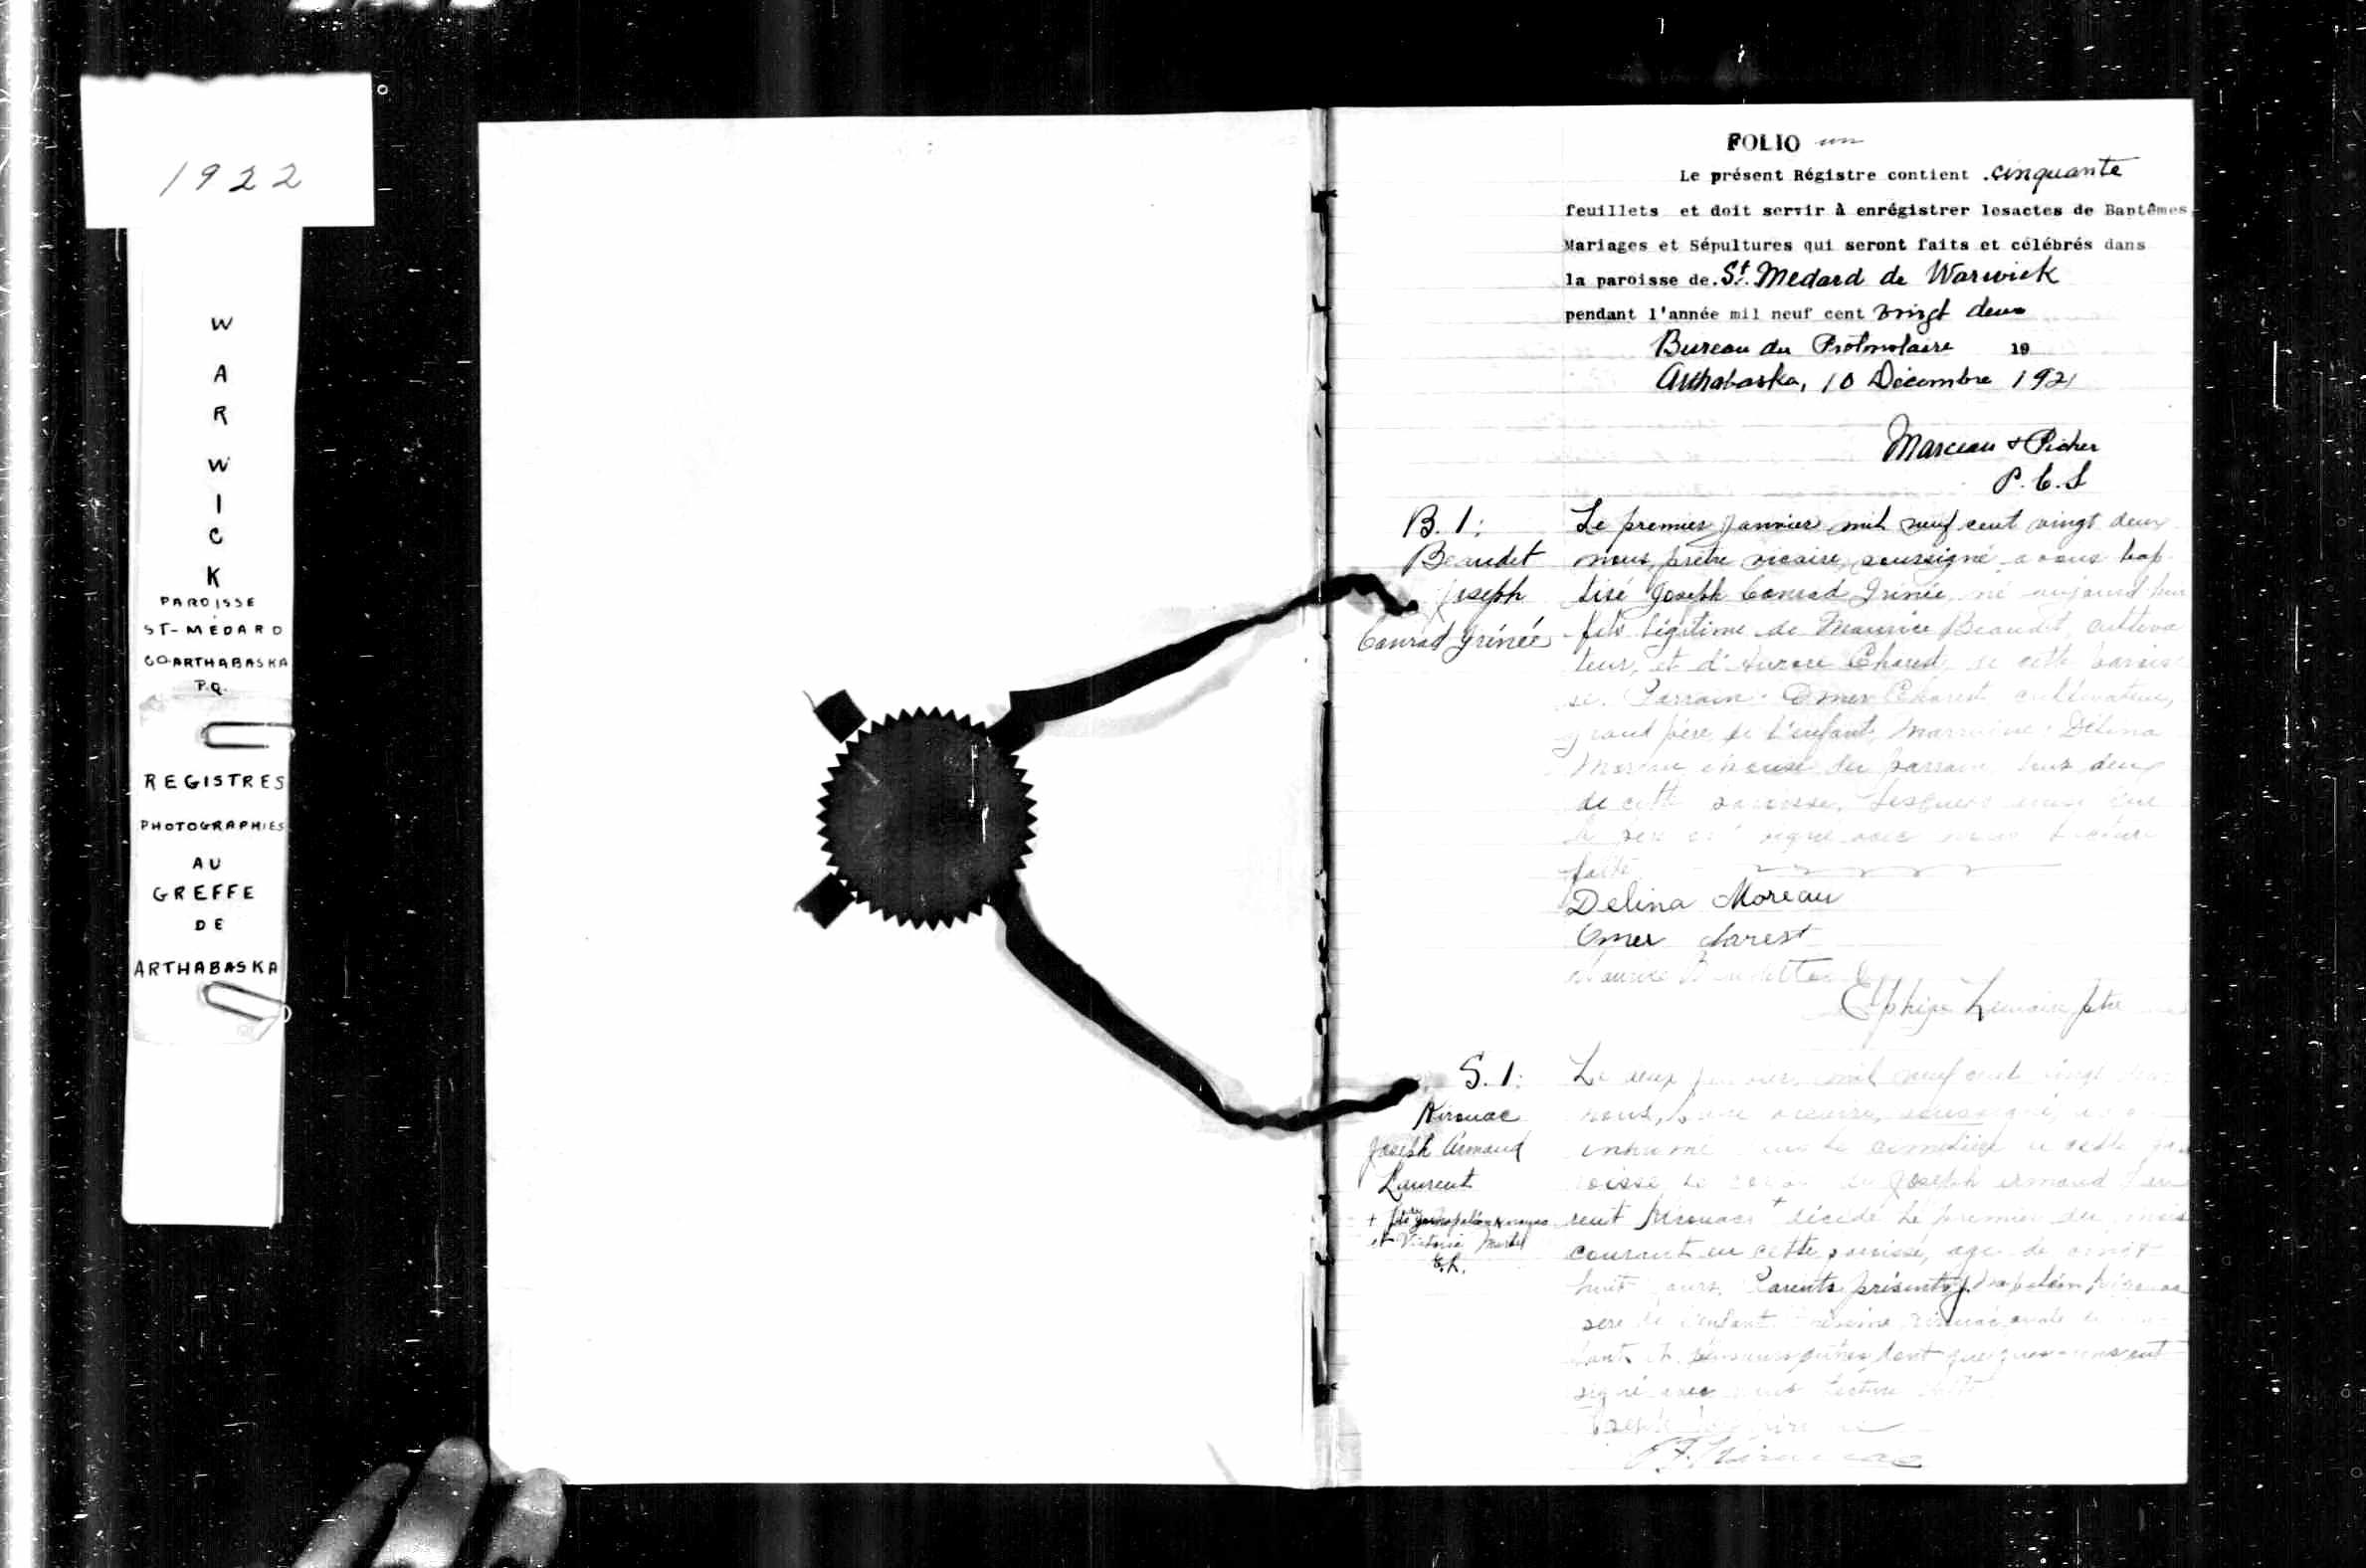 1922
W
A
R
W
I
C
K
PAROISSE
ST-MÉDARD
CO ARTHABASKA
P.Q.
REGISTRES
PHOTOGRAPHIES
AU
GREFFE
DE
ARTHABASKA
FOLIO un
Le présent Régistre contient cinquante
feuillets et doit servir à enrégistrer lesactes de Baptêmes
Mariages et Sépultures qui seront faits et célébrés dans
la paroisse de St. Medard de Warwick
pendant l'année mil neuf cent vingt deux
Bureau du Protonotaire 19
Arthabaska, 10 Décembre 1921
Marceau & Picher
P. C. S
B. 1:
Beaudet
Joseph
Conrad Irénée
Le premier janvier mil neuf cent vingt deux
nous, prêtre vicaire, soussigné avons bap
tisé Joseph Conrad Irénée, né aujourd'hui
fils légitime de Maurice Beaudet cultiva
teur, et d'Aurore Charest, de cette parois
se. Parrain Omer Charest cultivateur,
grand père de l'enfant, marraine Délina
Moreau épouse du parrain, tous deux
de cette paroisse, lesquels
le père signé avec nous Lecture
faite
Delina Moreau
Omer Charest
Maurice Beaudette
Elphège Lemaire ptre
S. 1:
Kirouac
Joseph Armand
Laurent
et Victoria Martel
E.L.
Le deux janvier, mil neuf cent vingt
nous, vicaire, soussigné,
inhumé le cimetière de cette pa
roisse le corps de Joseph Armand Lau
rent Kirouac + décédé le premier du mois
courant en cette paroisse, agé de vingt
huit jours. Parents présents Napoléon Kirouac
père de l'enfant,
et plusieurs autres dont quelques-uns ont
signé avec nous Lecture faite